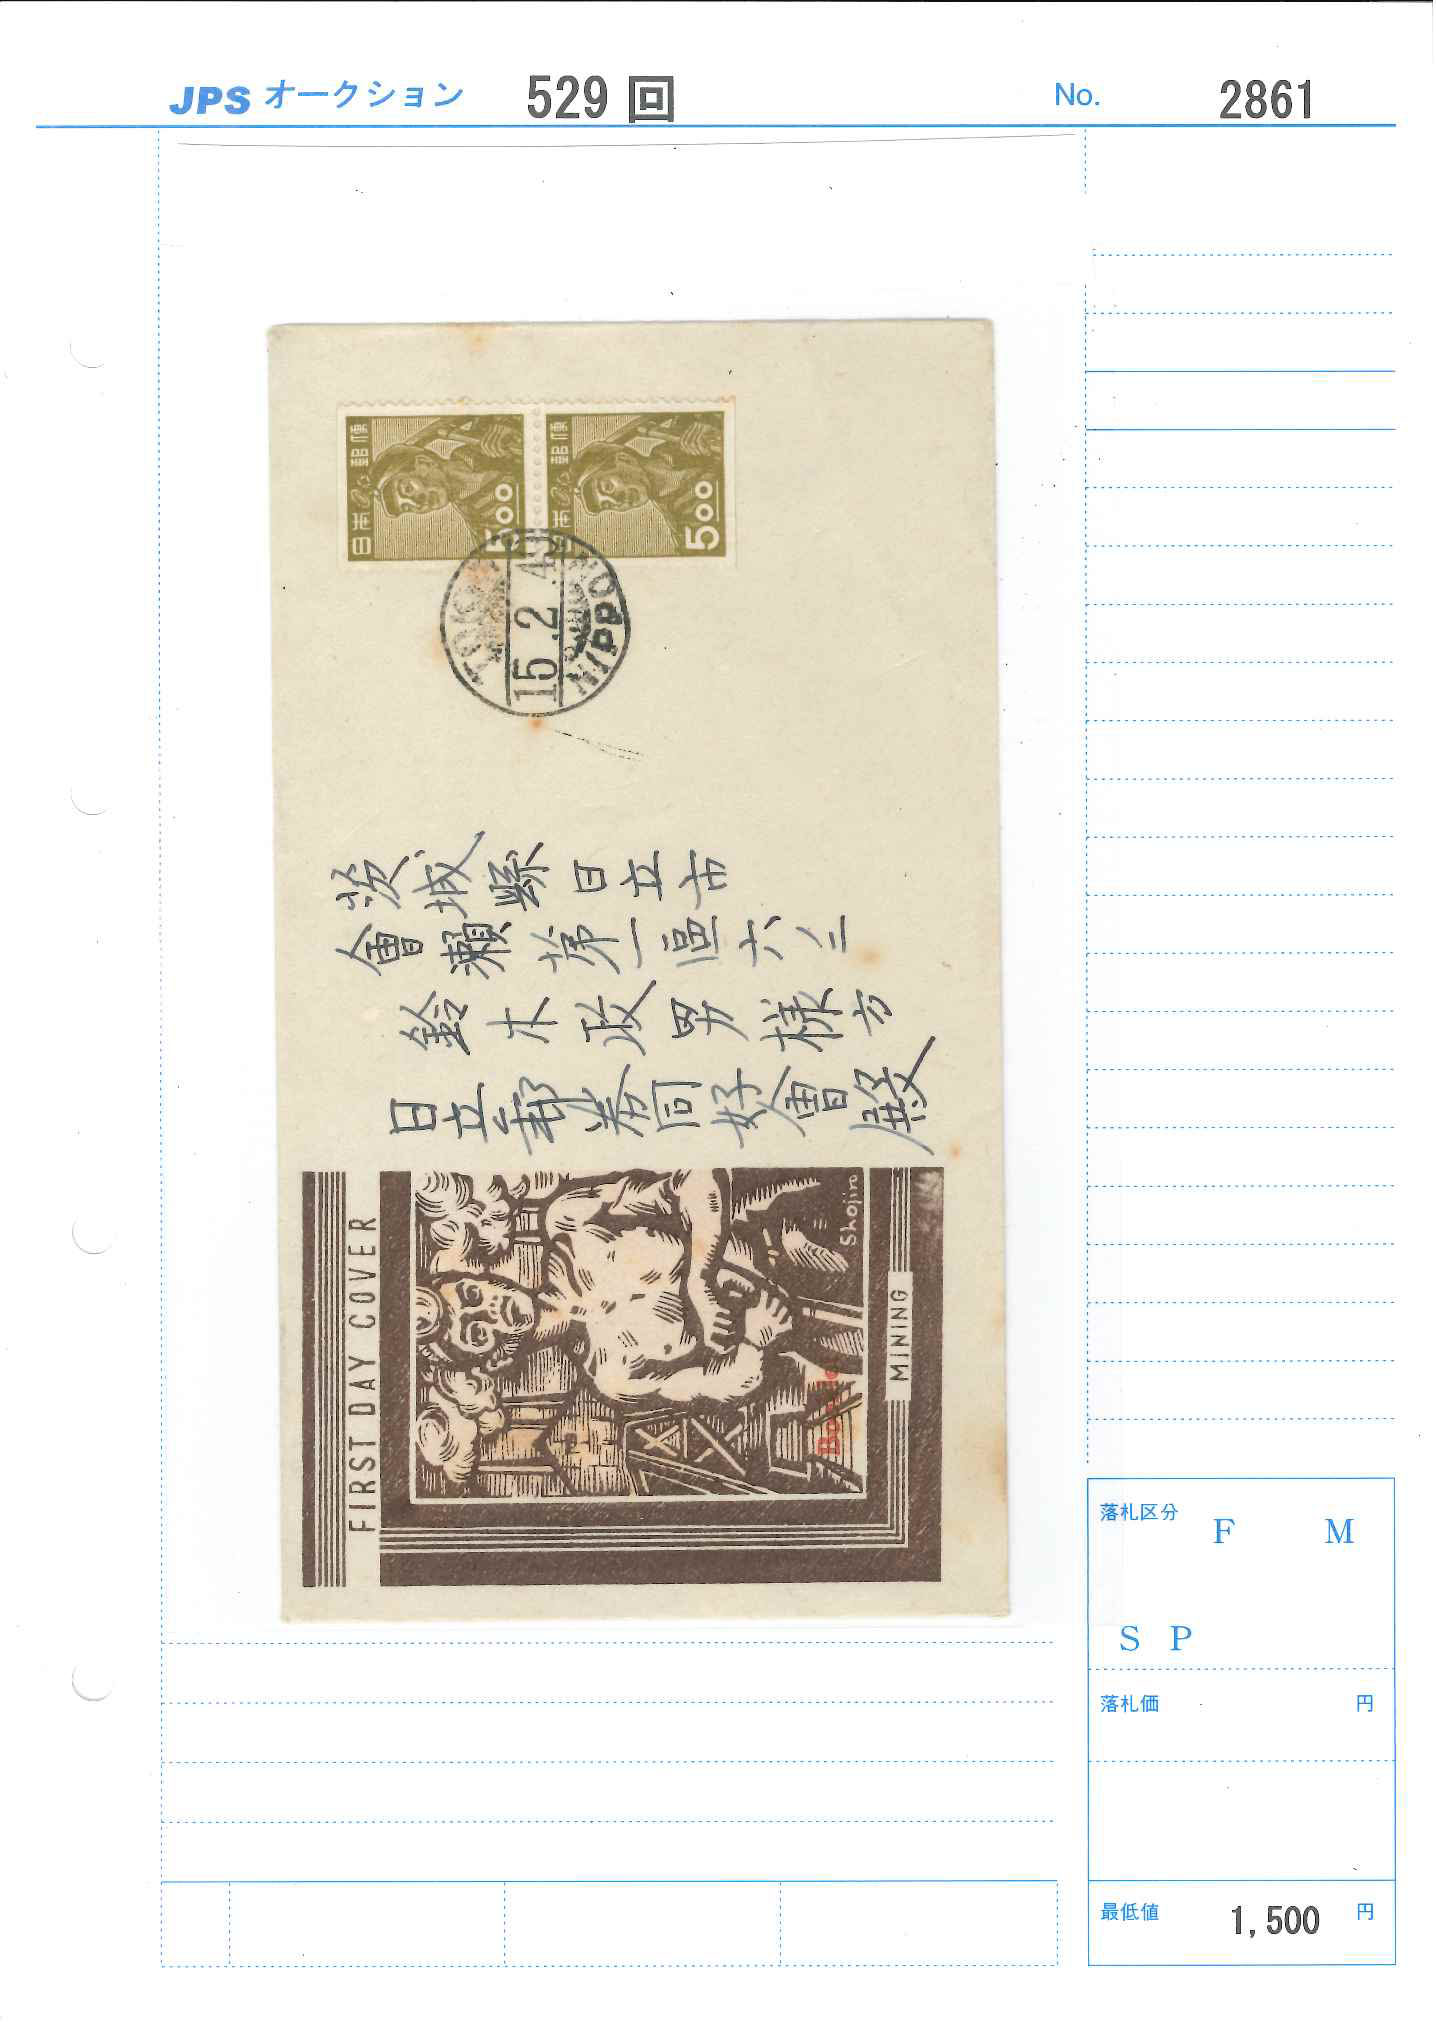 JPS オークション 529 回 No. 2861
日本郵便
5oo
日本郵便
5oo
TOKYO
15.2.49
NIPPON
茨城縣日立市
會瀬第一區六ノ二
鈴木政男様方
日立郵券同好會殿
FIRST DAY COVER
Shojiro
MINING
落札区分 F M
S P
落札価 円
最低値 1,500 円